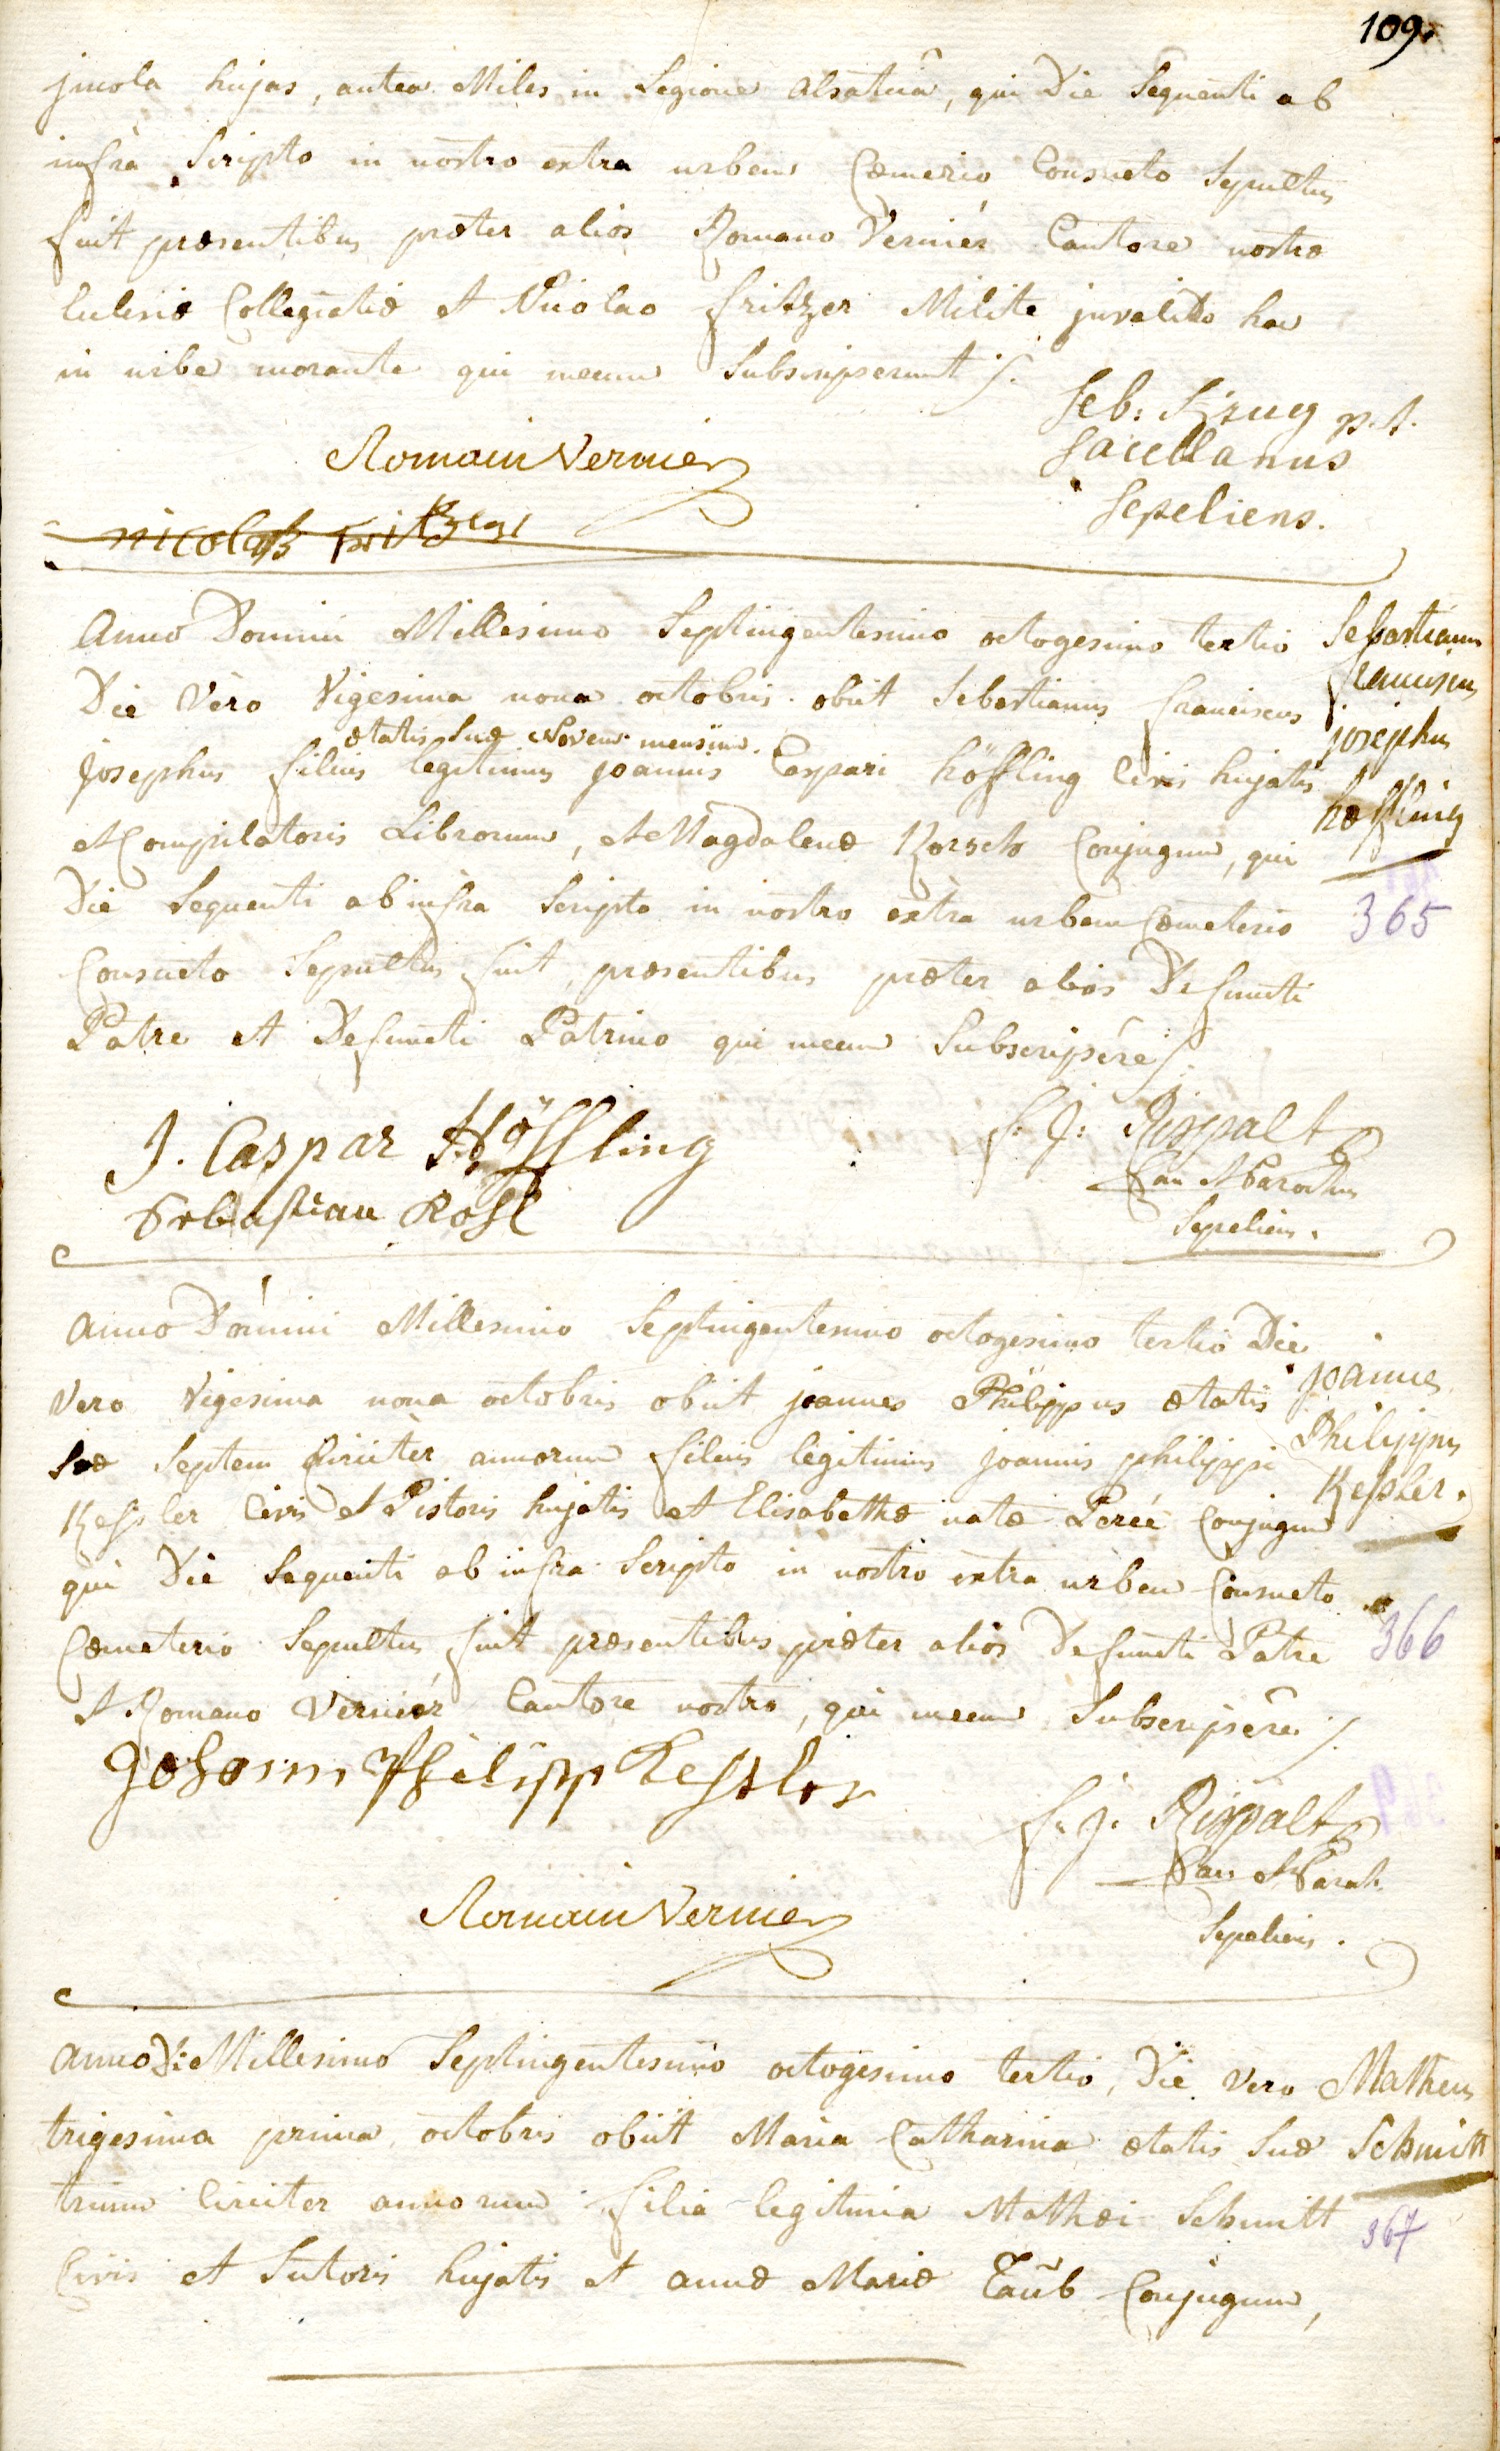 109.
jncola hujas, antea Miles in Legione Alsaticâ, qui Die Sequenti ab
infrà Scripto in nostro extra urbem Cœmerio Consueto Sepultus
fuit præsentibus præter alios Romano Verniér Cantore nostræ
Eclesiæ Collegiatiæ et Nicolao fritzer Milite jnvalido hac
in urbe morante qui mecum Subscripserunt ./.
Seb: Krug p.t.
Sacellanus
Sepeliens.
Romain Vernier
nicolaß fritzer
Anno Domini Millesimo Septingentesimo octogesimo tertio
Die Vero Vigesima nona octobris obiit Sebastianus franciscus
ætatis Suæ Novem mensium.
Josephus filius legitimus joannis Caspari höffling Civis hujatis
et Compilatoris Librorum, et Magdalenæ Korsch Conjugum, qui
Die Sequenti ab infra Scripto in nostro extra urbem Cœmeterio
Consueto Sepultus fuit, præsentibus præter alios Defuncti
Patre et Defuncti Patrino qui mecum Subscripsêre ./.
Sebastianus
franciscus
josephus
höffling
365
J. Caspar Höffling
Sebastian Rosl
f. J. Rispalt
Can et Parochus
Sepeliens.
Anno Domini Millesimo Septingentesimo octogesimo tertio Die
Vero Vigesima nona octobris obiit joannes Philippus ætatis
Suæ Septem Circiter annorum filius legitimus joannis philippi
Keßler Civis et Pistoris hujatis et Elisabethæ natæ Pereé Conjugum
qui Die Sequenti ab infra Scripto in nostro extra urbem Consueto
Cœmeterio Sepultus fuit præsentibus præter alios Defuncti Patre
et Romano Verniér Cantore nostro, qui mecum Subscripsêre ./.
joannes
Philippus
Keßler.
366
Johann Philipp Keßler
f. j. Rispalt
Can et Paroch.
Sepeliens.
Romain Vernier
Anno D: Millesimo Septingentesimo octogesimo tertio, Die Vero
trigesima prima octobris obiit Maria Catharina ætatis Suæ
trium Circiter annorum filia legitima Mathæi Schmitt
Civis et Sutoris hujatis et annæ Mariæ Taub Conjugum,
Matheus
Schmitt
367